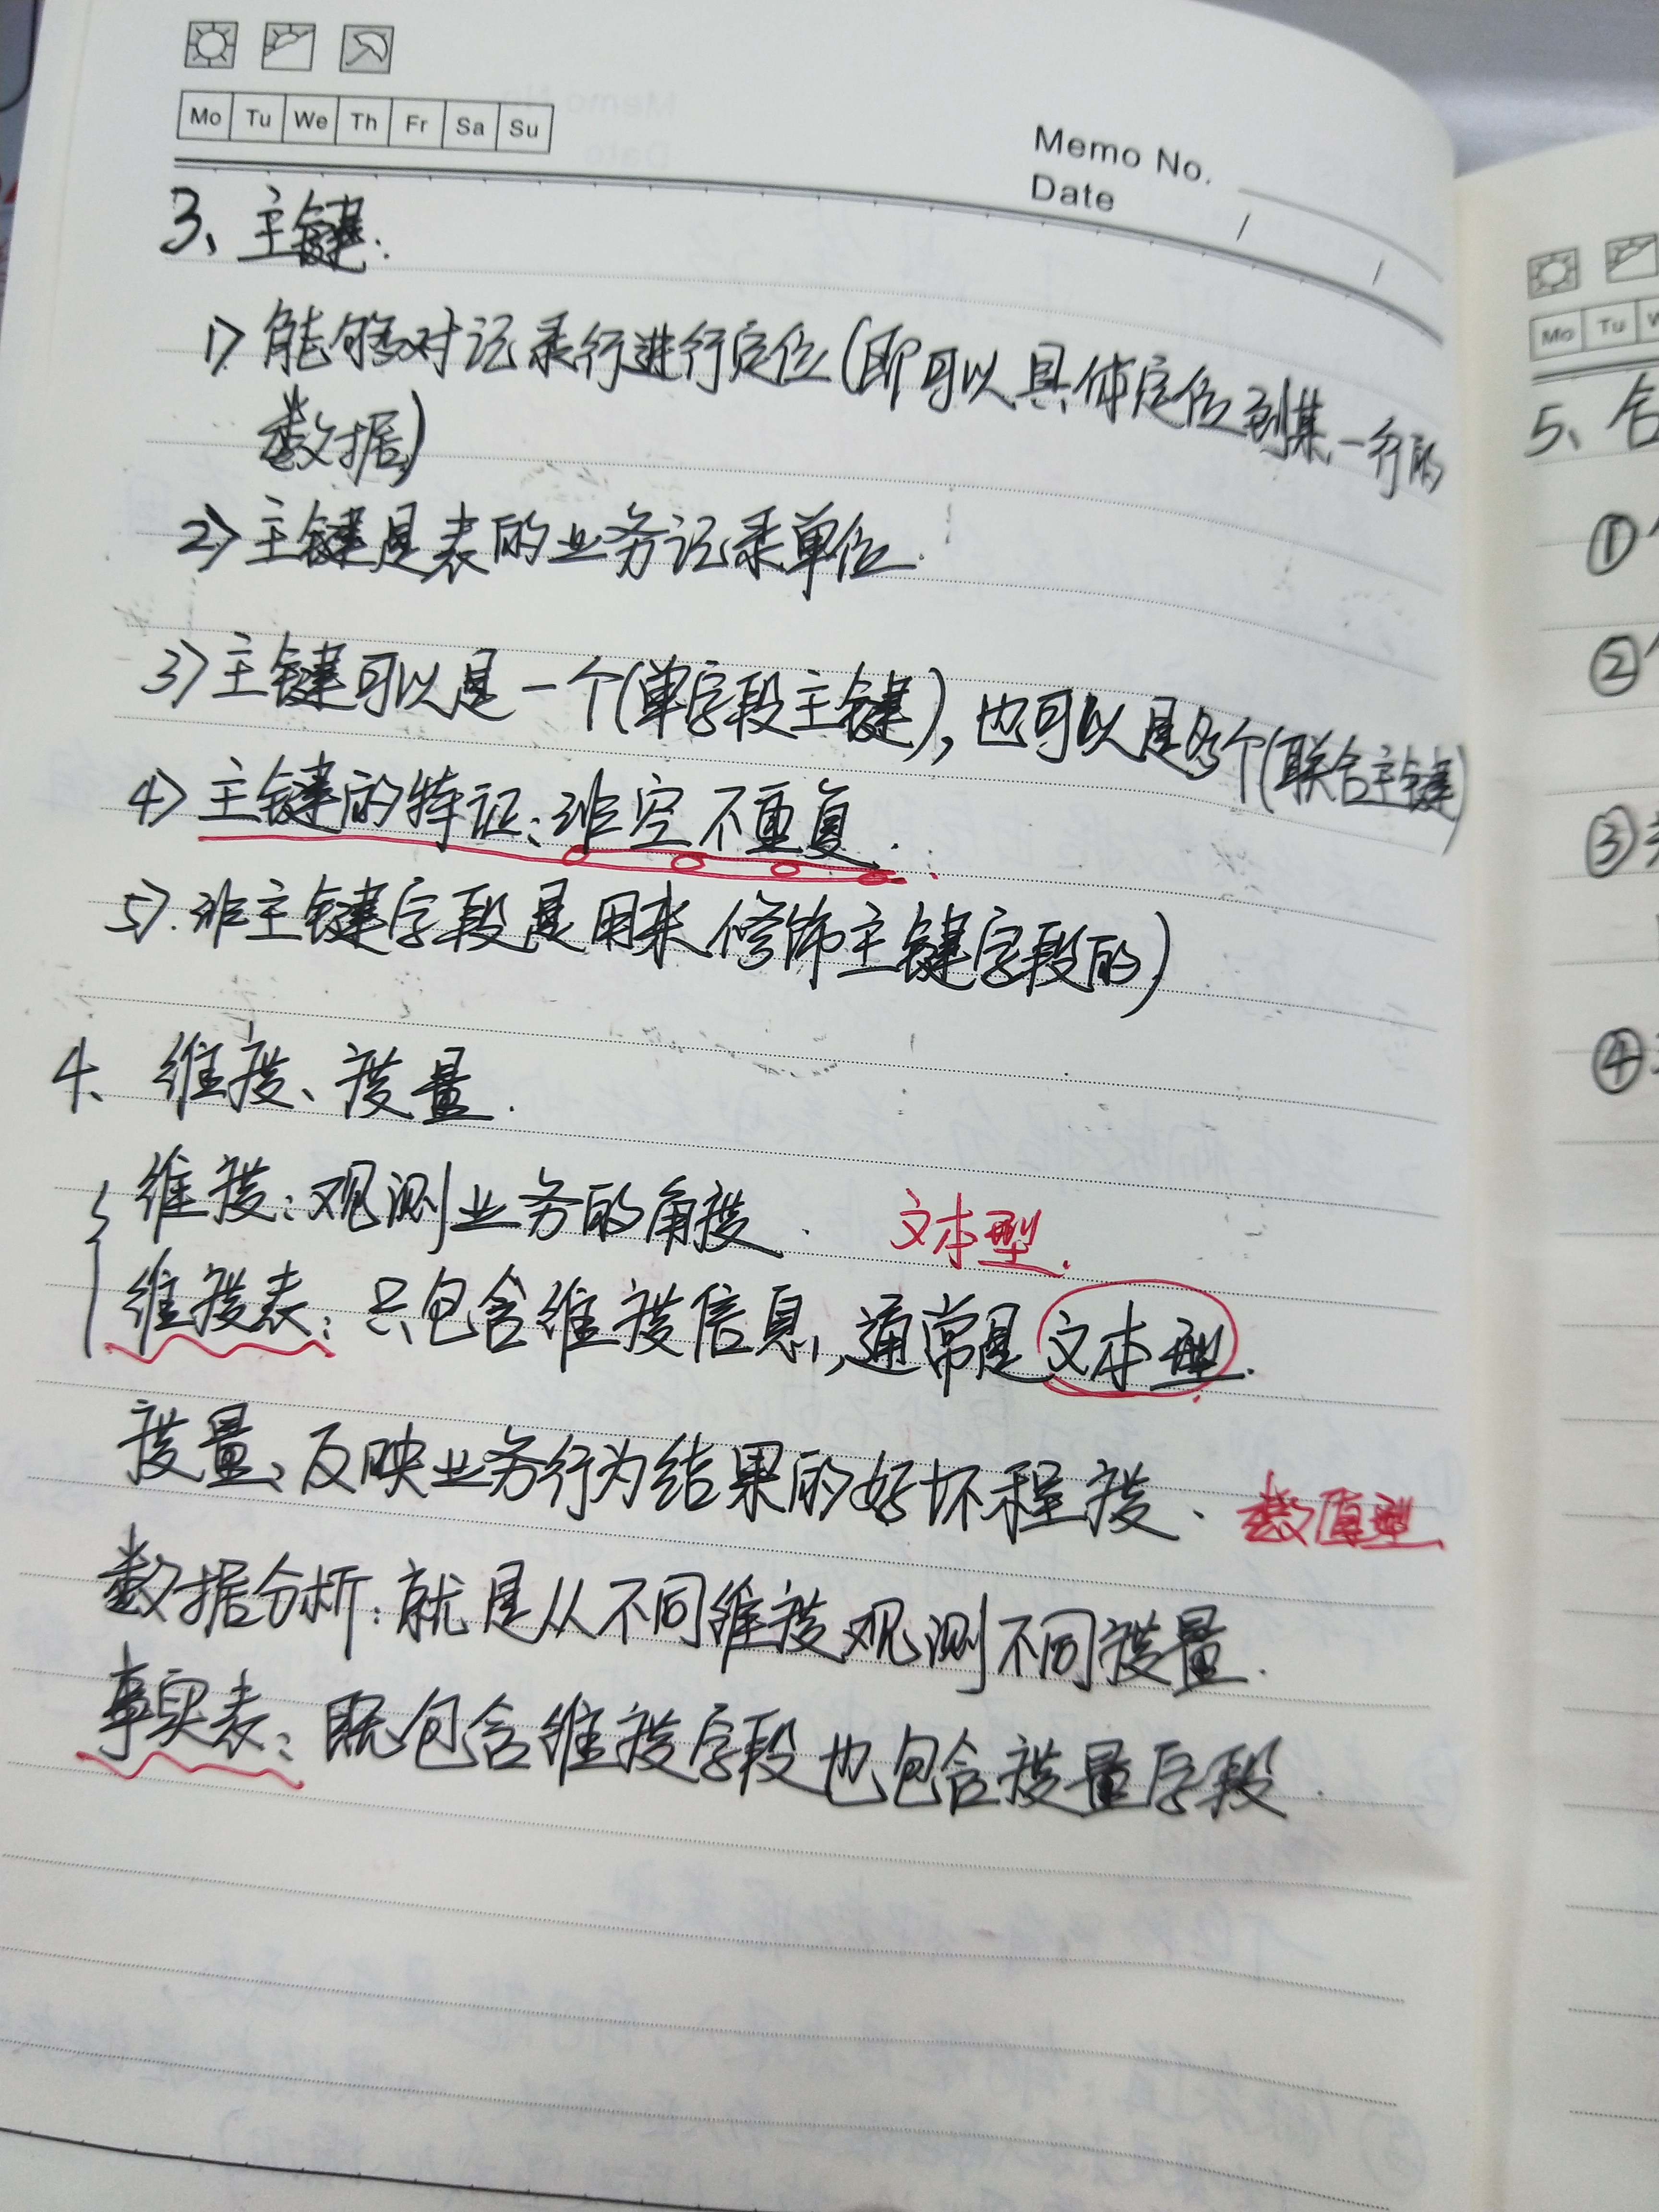 Mo Tu We Th Fr Sa Su
Memo No.
Date / /
3、主键:
1) 能够对记录行进行定位(即可以具体定位到某一行的
数据)
2) 主键是表的业务记录单位.
3) 主键可以是一个(单字段主键), 也可以是多个(联合主键)
4) 主键的特征: 非空不重复.
5). 非主键字段是用来修饰主键字段的)
4、维度、度量.
维度: 观测业务的角度. 文本型.
维度表: 只包含维度信息, 通常是文本型.
度量、反映业务行为结果的好坏程度、数值型
数据分析: 就是从不同维度观测不同度量.
事实表: 既包含维度字段也包含度量字段.
Mo Tu
5、
①
②
③
④